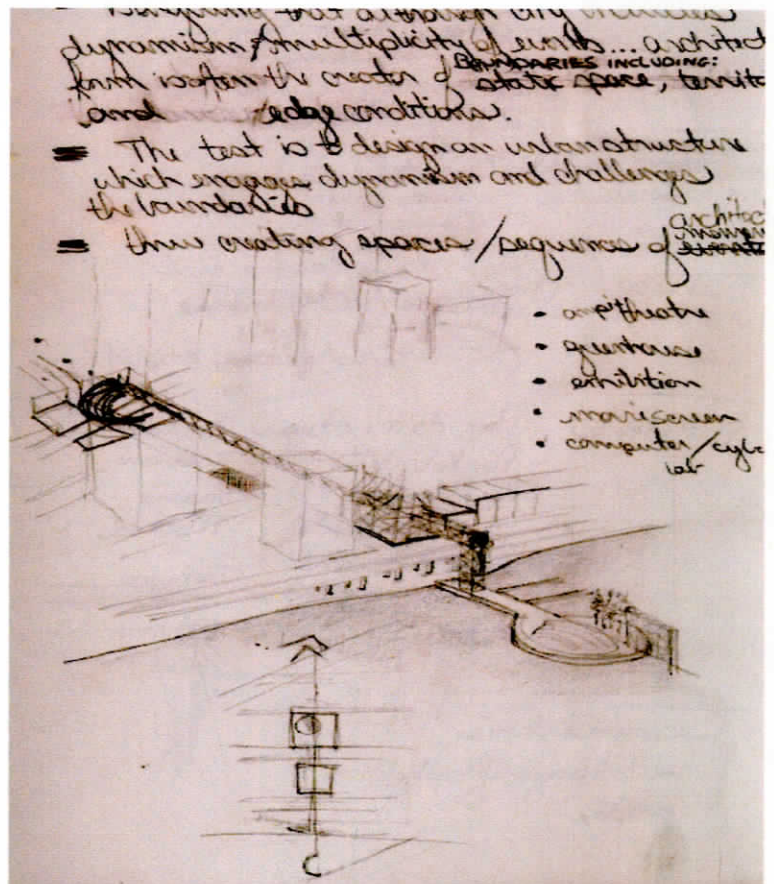 that although city includes
dynamism & multiplicity of events... architect
form is often the creator of BOUNDARIES INCLUDING:
static space, territo
and edge conditions.
= The test is to design an urban structure
which engages dynamism and challenges
the boundaries
architec
= thru creating spaces / sequence of events
• ampitheatre
• greenhouse
• exhibition
• moviescreen
• computer / cybe
lab